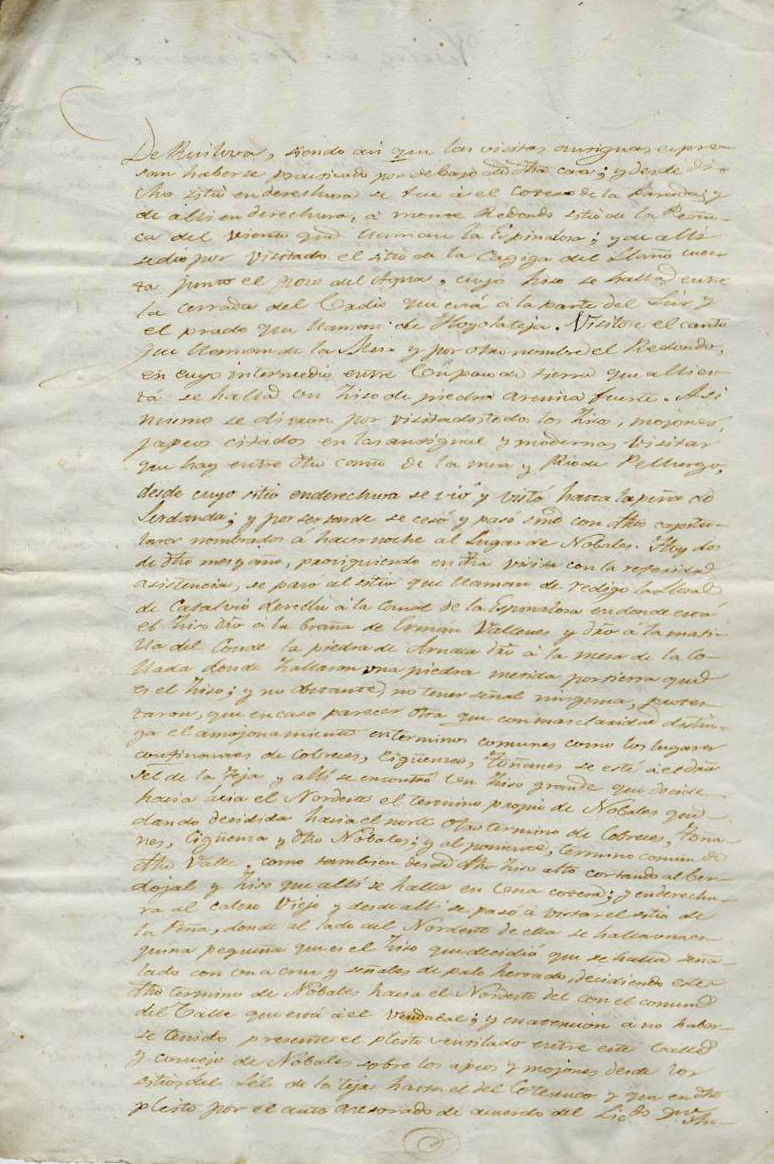 De Ruilova, siendo asi que las visitas ansiguas expre-
san haberse practicado por debajo de dha casa; y desde di-
cho sitio enderechura se fue á el Cotero de la Parada; y
de alli en derechura, á monte Redondo sitio de la
ca del Viento que llaman la Espinalosa; y de alli
se dio por visitado el sitio de la Cagiga del Llano
ta junto el Pozo del Agua, cuyo hiso se halla entre
la cerrada del que está á la parte del Sur y
el prado que llaman de Hoyolateja. Visitose el canto
que llaman de la Mesa y por otro nombre el Redondo,
en cuyo intermedio entre Un pozo de tierra que alli es-
tá se halla un hiso de piedra arenisa fuerte. Asi
mismo se dieron por visitados todos los hisos, mojones,
y apeos citados en las ansiguas y modernas Visitas
que hay entre dho canto de la mesa y Rio de Pelurgo,
desde cuyo sitio enderechura se vió y visitó hasta la peña de
Serdanda; y por ser tarde se cesó y pasó smd con dhos capitu-
lares nombrados á hacer noche al Lugar de Nobales. Hoy dos
de dho mes y año, prosiguiendo en dha visita con la referida
asistencia, se paso al sitio que llaman de
de Casalvio derecho á la Canal de la Espinalosa en donde está
el hiso dro á la braña de Vallenes y dro á la mati-
lla del Conde la piedra de dro á la mesa de la Co-
llada donde hallaron una piedra metida por tierra que
es el hiso; y no obstante no tener señal ninguna, protes-
taron, que en caso parecer otra que con mas claridad distin-
ga el amojonamiento en terminos comunes como los lugares
confinantes de Cobreces, Cigüenza, Toñanes se esté á el dro
Sel de la Teja y allí se encontró Un hiso grande que decide
hasia ácia el Nordeste el termino propio de Nobales que
dando decidida hasia el norte otro termino de Cobreces, Toña-
nes, Cigüenza y dho Nobales; y al poniente, termino comun de
dho Valle, como tambien desde dho hiso alto cortando al ber-
dojal y hiso que alli se halla en una cotera; y enderechu-
ra al calero Viejo y desde alli se pasó á visitar el sitio de
la Peña, donde al lado del Nordeste de ella se halla una es-
quina pequeña que es el hiso que decidió que se halla seña-
lado con una cruz y señales de palo herrado, decidiendo este
dho termino de Nobales hasia el Nordeste del con el comun
del Valle que está á el Vendabal; y en atencion á no haber-
se tenido presente el pleito ventilado entre este Valle
y concejo de Nobales sobre los apeos y mojones desde los
sitios del Sel de la teja hasta el del y que en dho
pleito por el auto asesorado de acuerdo del Licdo Dn